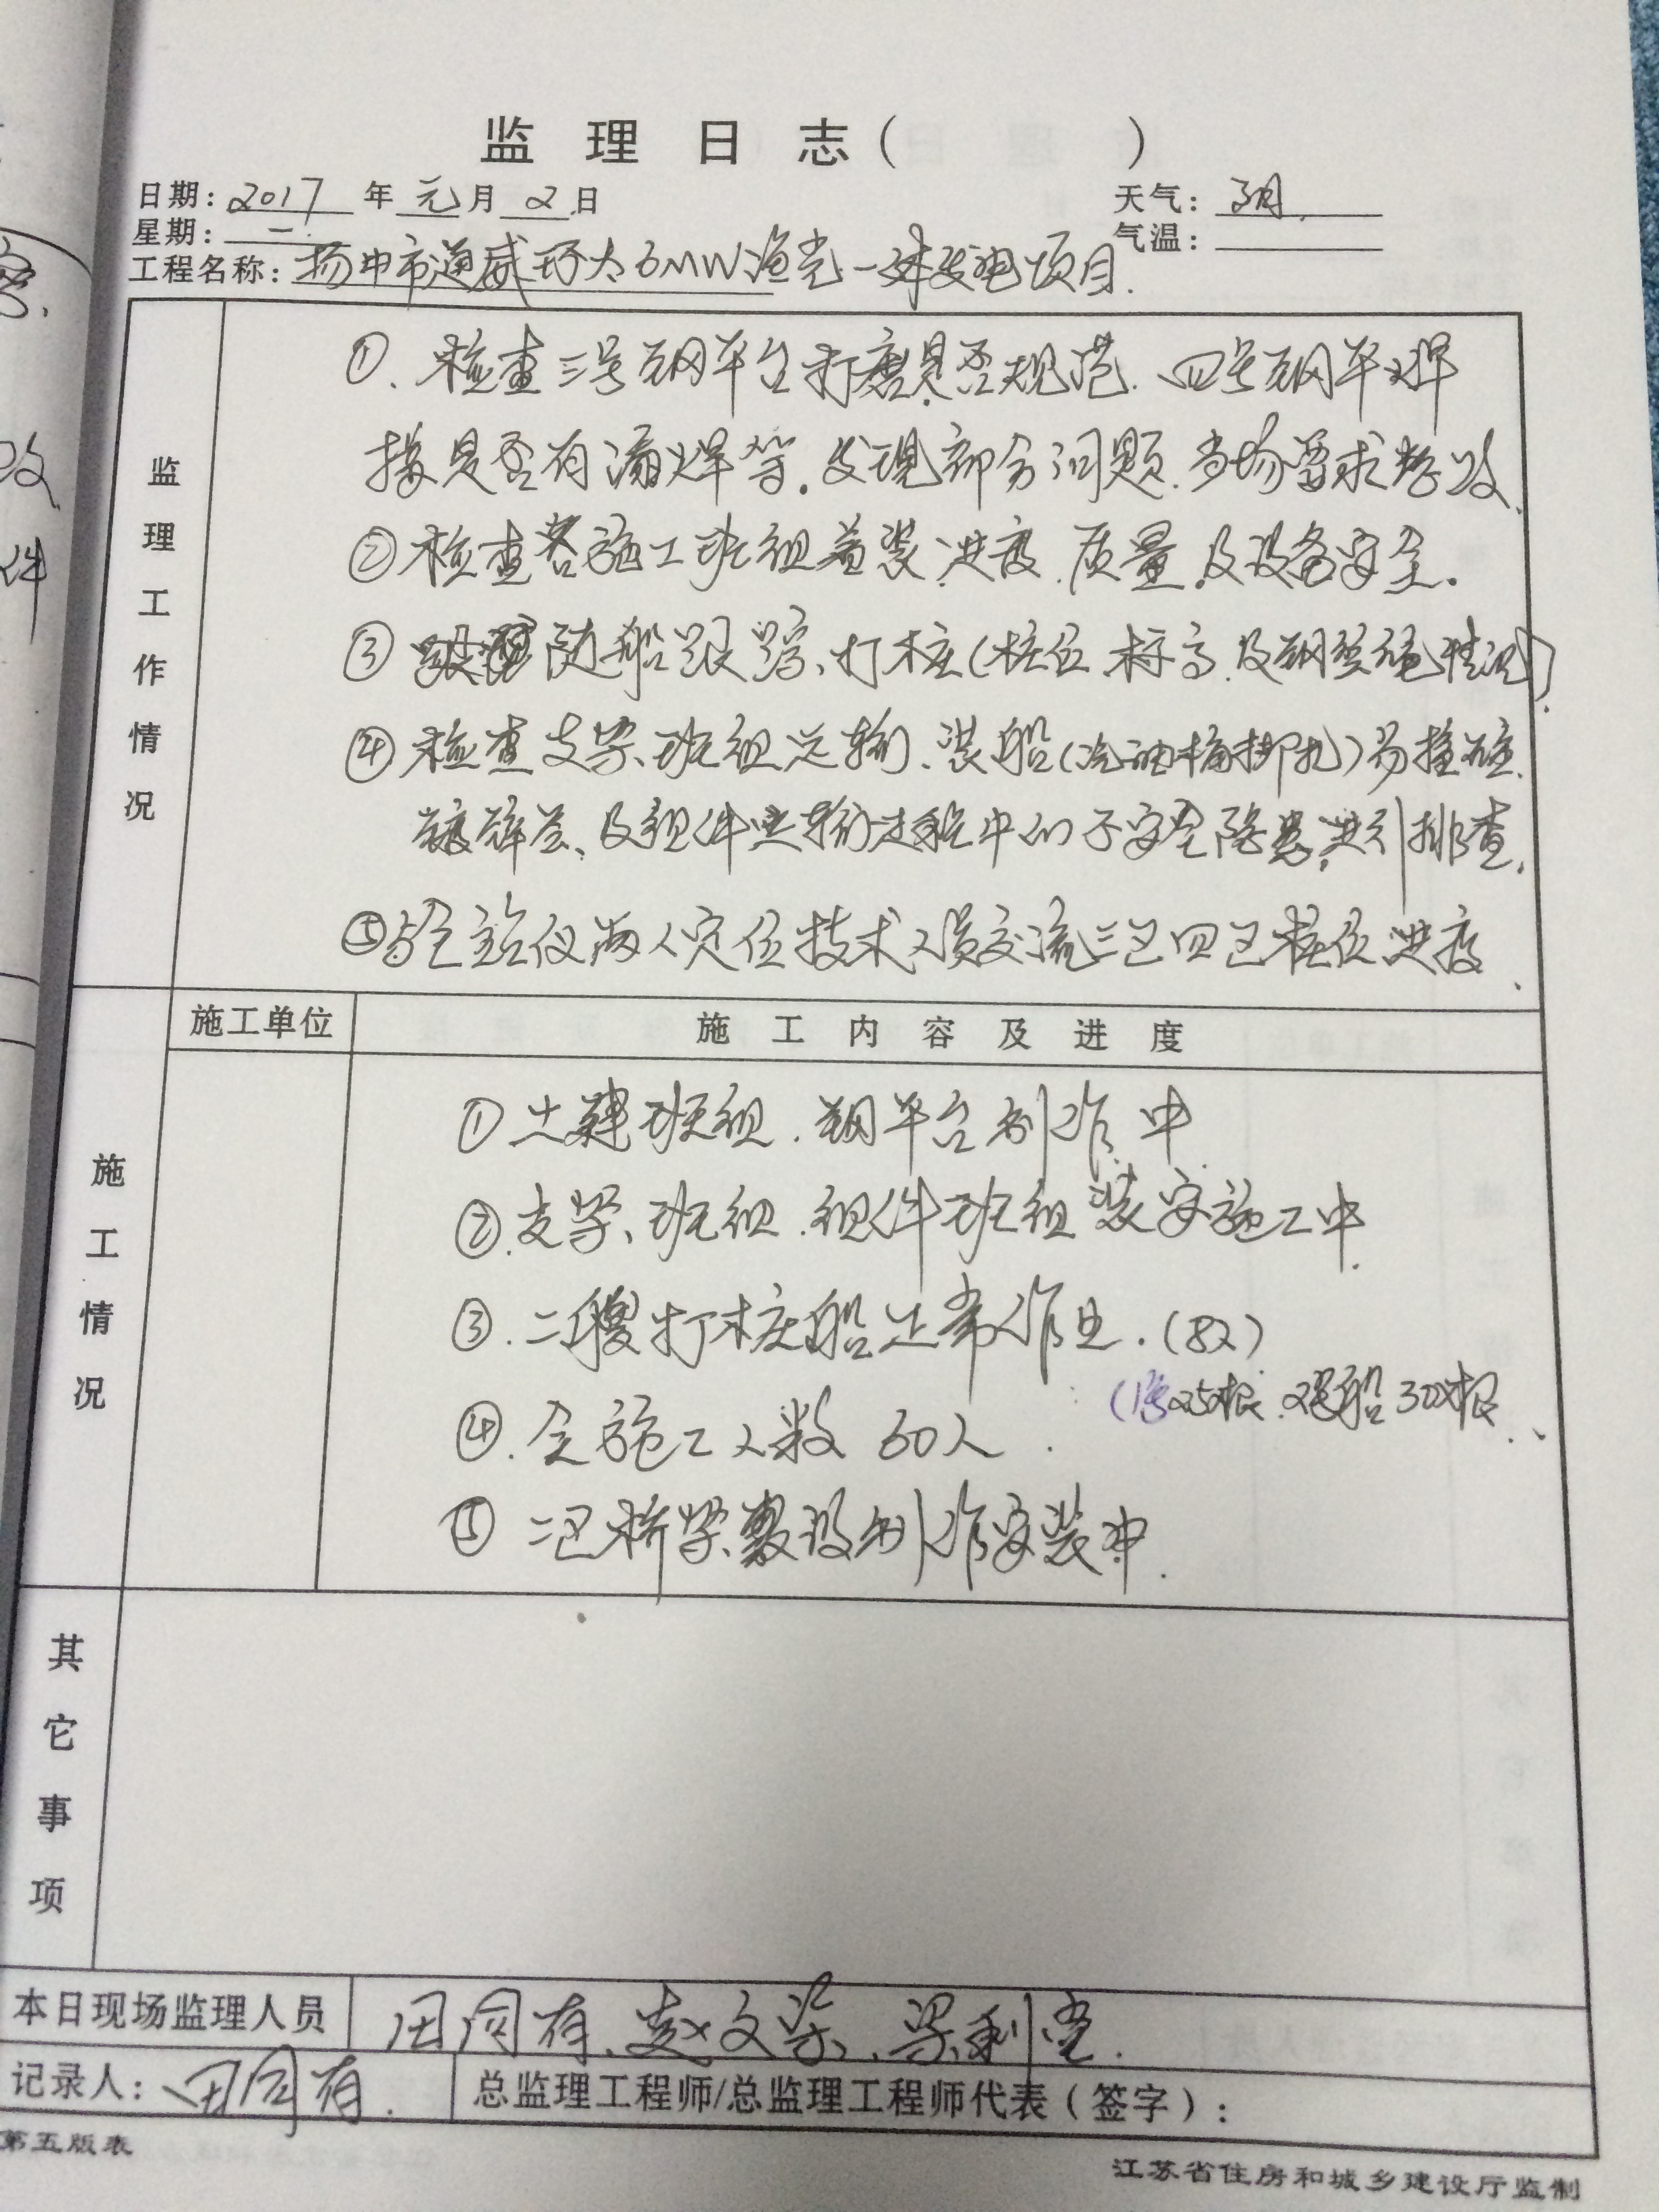 监 理 日 志（ ）
日期：2017 年 元 月 2 日 天气：阴.
星期：一. 气温：
工程名称：扬中市通威 6MW渔光一体发电项目.
监理工作情况
①、检查三号钢平台打磨是否规范、四号钢平焊
接是否有漏焊等.发现部分问题.当场要求整改、
②检查各施工班组着装、进度、质量、及设备安全。
③ 随船跟踪、打桩(桩位、标高、及 情况)
④检查支架、班组运输、装船(汽油桶绑扎)
及组件运输过程中的 安全隐患,进行排查,
⑤与全站仪两人定位技术人员交流三区四区桩位进度、
施工单位 施 工 内 容 及 进 度
施工情况
①土建班组、钢平台制作中
②.支架、班组、组件班组装安施工中.
③.二艘打桩船正常作业.
根. 船 根、
④.全施工人数 60人.
⑤ 二区桥架 设制作安装中.
其它事项
本日现场监理人员 田同有、赵文荣、梁利
记录人：田同有. 总监理工程师/总监理工程师代表（签字）：
第五版表 江苏省住房和城乡建设厅监制
改
件